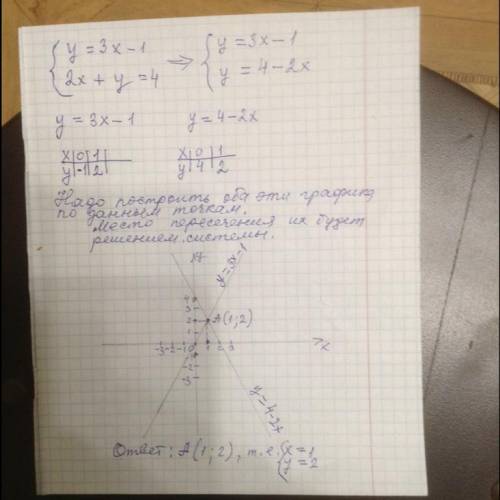 { y = 3x − 1 ⇒ { y = 3x − 1
{ 2x + y = 4 { y = 4 − 2x
y = 3x − 1 y = 4 − 2x
x | 0 | 1 x | 0 | 1
y | -1 | 2 y | 4 | 2
Надо построить оба эти графика
по данным точкам.
Место пересечения их будет
решением системы.
y
y = 3x − 1
4
3
2 A(1;2)
1
-3 -2 -1 0 1 2 3 x
-1
-2
-3
y = 4 − 2x
Ответ: A(1;2), т.е. { x = 1
{ y = 2